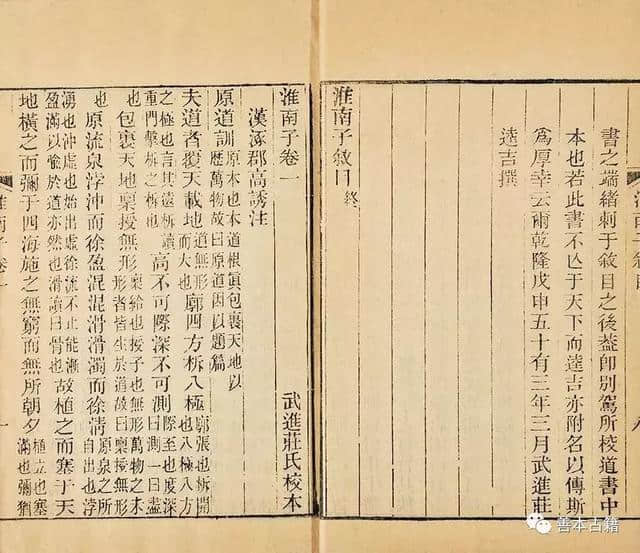 書之端緒刺于敘目之後蓋卽別駕所校道書中
本也若此書不亾于天下而逵吉亦附名以傳斯
爲厚幸云爾乾隆戊申五十有三年三月武進莊
逵吉撰
淮南子敘目終
淮南子卷一
漢涿郡高誘注
武進莊氏校本
原道訓原本也本道根眞包裹天地以歷萬物故曰原道因以題篇
夫道者覆天載地道無形而大也廓四方柝八極廓張也柝開也八極八方
之極也言其遠柝讀重門擊柝之柝也高不可際深不可測際至也度深曰測一曰盡
也包裹天地稟授無形稟給也授予也無形萬物之未形者皆生於道故曰稟授無形
也原流泉浡沖而徐盈混混滑滑濁而徐淸原泉之所自出也浡
湧也沖虛也始出虛徐流不止能漸盈滿以喩於道亦然也滑讀曰骨也故植之而塞于天
地橫之而彌于四海施之無窮而無所朝夕植立也塞滿也彌猶
淮南子卷一
一
善本古籍